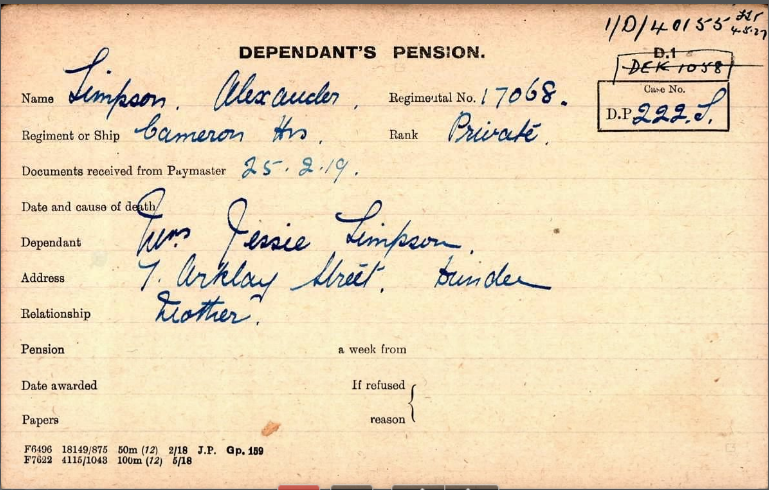 1/D/40155
4.5.27
DEPENDANT'S PENSION.
D.1
DEK 1058
Name Simpson, Alexander. Regimental No. 17068.
Case No.
D.P. 222.S.
Regiment or Ship Cameron Hrs. Rank Private.
Documents received from Paymaster 25.2.19.
Date and cause of death
Dependant Mrs Jessie Simpson.
Address 7. Arklay Street. Dundee
Relationship Mother.
Pension a week from
Date awarded If refused
Papers reason
F6496 18149/875 50m (12) 2/18 J.P. Gp. 159
F7622 4115/1043 100m (12) 5/18